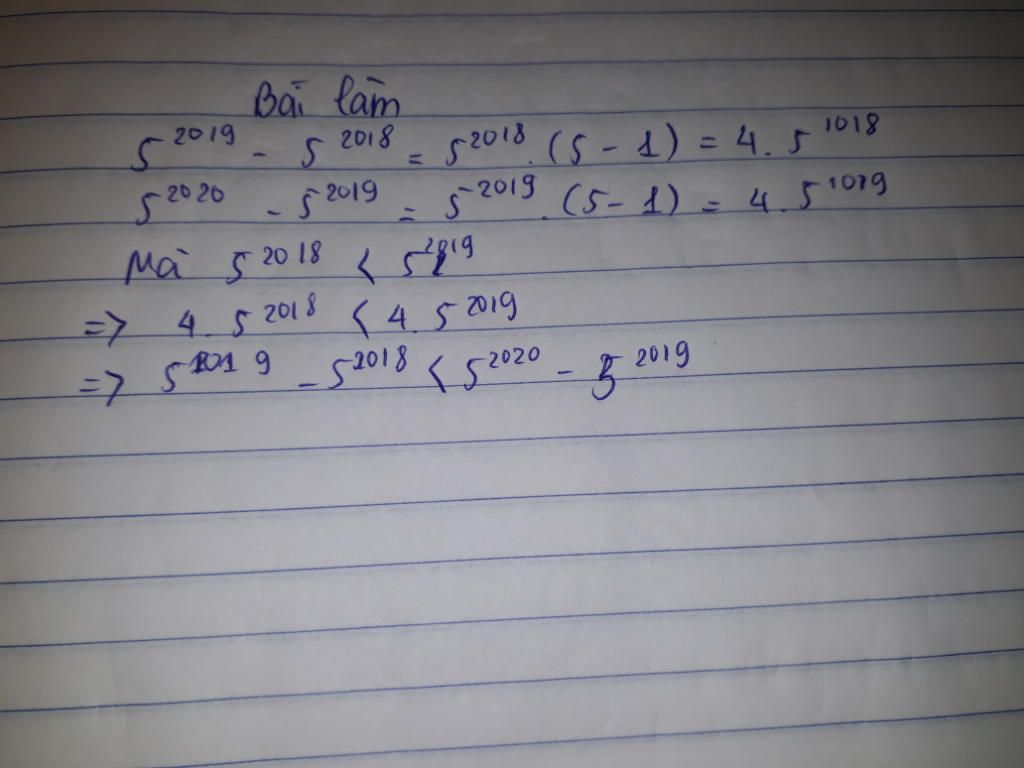 Bài làm
5^2019 - 5^2018 = 5^2018 . (5 - 1) = 4 . 5^1018
5^2020 - 5^2019 = 5^2019 . (5 - 1) = 4 . 5^1019
Mà 5^2018 < 5^2019
=> 4 . 5^2018 < 4 . 5^2019
=> 5^2019 - 5^2018 < 5^2020 - 5^2019